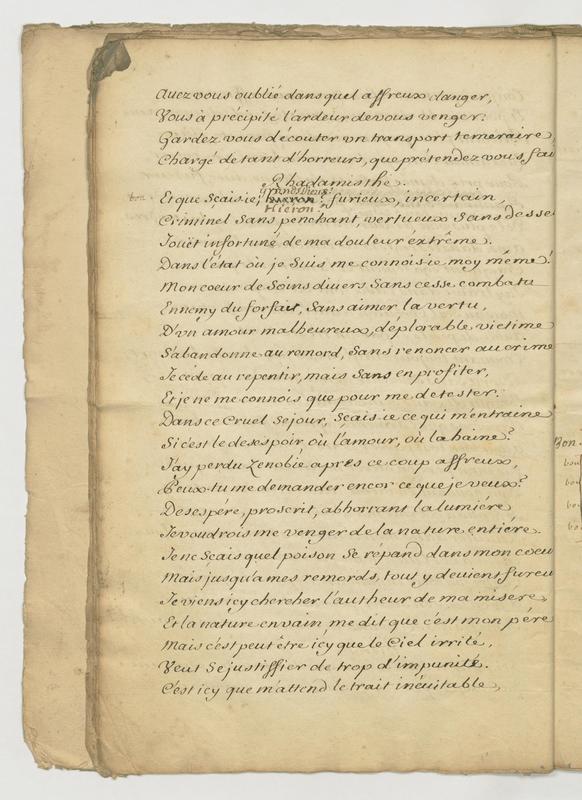 Auez vous oublié dans quel affreux danger,
Vous à précipité l'ardeur de vous venger.
Gardez vous d'écouter vn transport temeraire,
Chargé de tant d'horreurs, que prétendez vous fai
Rhadamisthe.
grands Dieux!
bon Et que scais-ie, furieux, incertain,
Hieron?
Criminel sans penchant, vertueux sans desse
Jouët infortuné de ma douleur éxtrême.
Dans l'état où je suis me connois-ie moy méme?
Mon coeur de soins diuers sans cesse combatu
Ennemy du forfait, sans aimer la vertu,
D'vn amour malheureux, déplorable victime
S'abandonne au remord, sans renoncer au crime
Je céde au repentir, mais sans en profiter,
Et je ne me connois que pour me detester.
Dans ce Cruel sejour, scais-ie ce qui m'entraine
Si c'est le desespoir, où l'amour, où la haine?
J'ay perdu Zenobie aprés ce coup affreux,
Peux-tu me demander encor ce que je veux?
Desespéré, proscrit, abhorrant la lumiére
Je voudrois me venger de la nature entiére.
Je ne scais quel poison se répand dans mon coeu
Mais jusqu'a mes remords, tout y deuient fureu
Je viens içy chercher l'autheur de ma misére
Et la nature envain me dit que c'est mon pére
Mais c'est peut être içy que le Ciel irrité,
Veut se justiffier de trop d'impunité.
C'est icy que m'attend le trait inéuitable,
Bon.